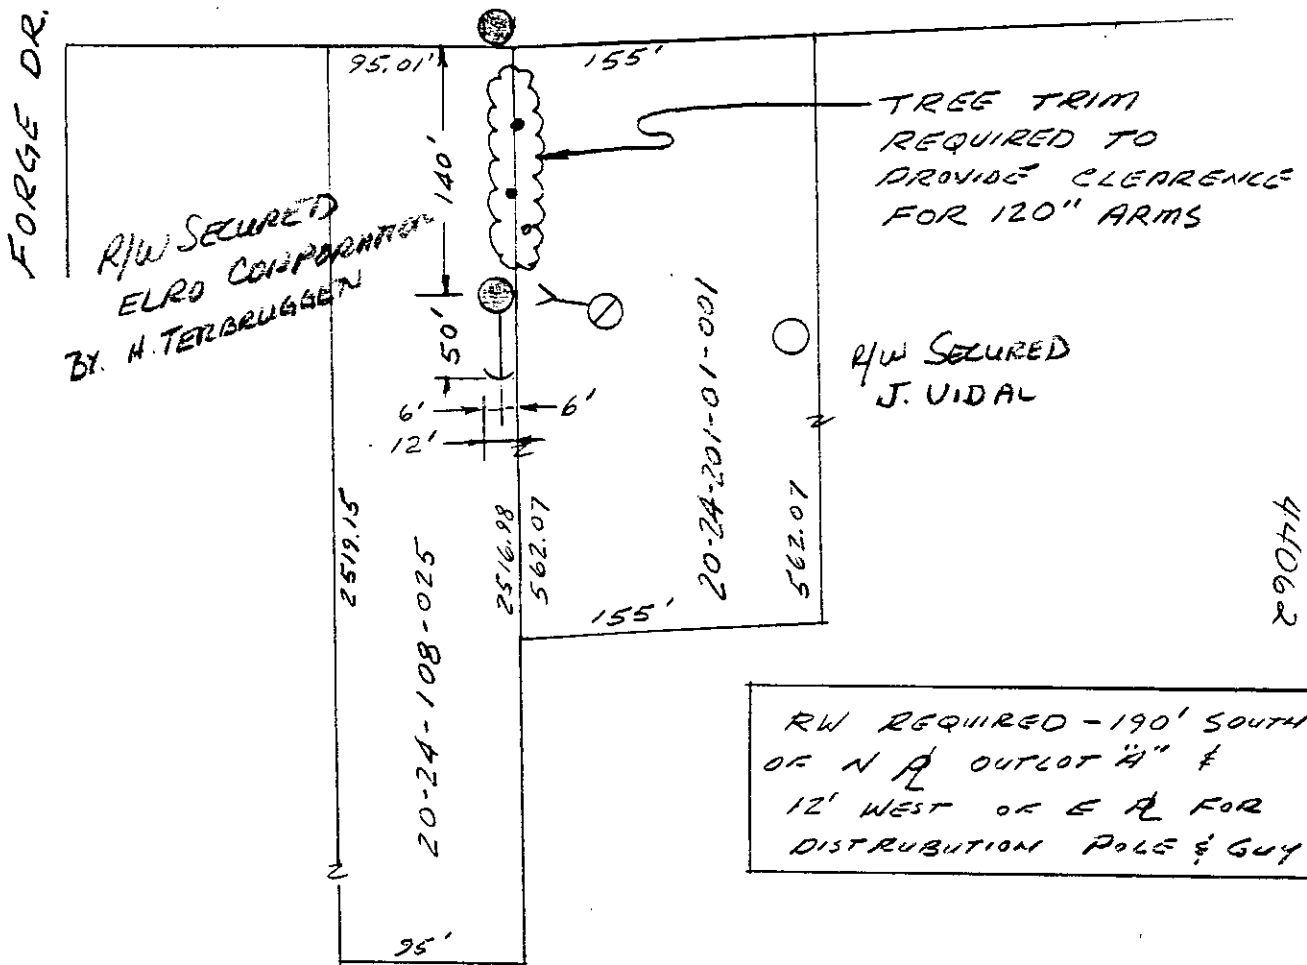 FORGE DR.
95.01'
155'
TREE TRIM
REQUIRED TO
PROVIDE CLEARENCE
FOR 120" ARMS
140'
R/W SECURED
ELRO CORPORATION
BY. H. TERBRUGGEN
50'
6'
6'
12'
R/W SECURED
J. VIDAL
20-24-201-01-001
2519.15
20-24-108-025
2516.98
562.07
562.07
155'
44062
RW REQUIRED - 190' SOUTH
OF N PL OUTLOT "A" &
12' WEST OF E PL FOR
DISTRUBUTION POLE & GUY
95'